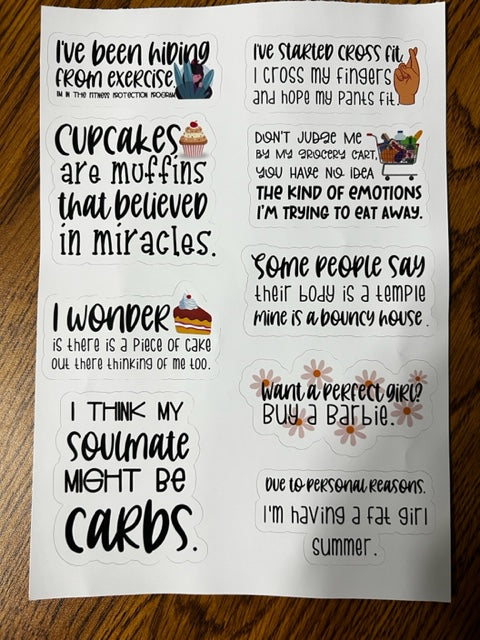 I've been hiding
from exercise.
I'm in the fitness protection program
Cupcakes
are muffins
that believed
in miracles.
I wonder
is there is a piece of cake
out there thinking of me too.
I THINK MY
soulmate
MIGHT BE
carbs.
I've started cross fit.
I cross my fingers
and hope my pants fit.
Don't judge me
by my grocery cart,
you have no idea
the kind of emotions
I'm trying to eat away.
Some people say
their body is a temple
mine is a bouncy house.
Want a perfect girl?
Buy a Barbie.
Due to personal reasons.
I'm having a fat girl
summer.